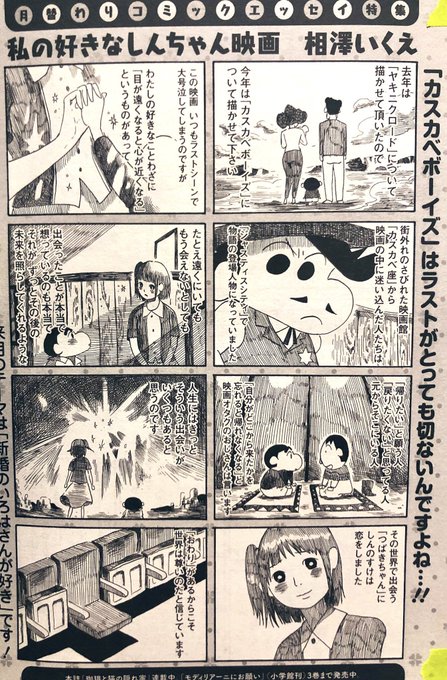 月替わりコミックエッセイ特集
私の好きなしんちゃん映画　相澤いくえ
「カスカベボーイズ」はラストがとっても切ないんですよね…!!
去年は
「ヤキニクロード」について
描かせて頂いたので
今年は「カスカベボーイズ」に
ついて描かせて下さい
この映画 いつもラストシーンで
大号泣してしまうのですが
わたしの好きなことわざに
「目が遠くなると心が近くなる」
というものがあって
街外れのさびれた映画館
「カスカベ座」から
映画の中に迷い込んだ人たちは
「ジャスティスシティ」で
物語の登場人物になっていました
たとえ遠くにいても
もう会えないとしても
出会ったことが本当で
想っているのも本当で
それが ずっとその後の
未来を照らしてくれるような
「帰りたい」と願う人
「戻りたくない」と思ってる人
元からそこにいる人
「自分がどこから来たかを
忘れると帰れなくなる」と
映画オタクのおじさんは言います
人生にはきっと
そういう出会いが
いくつもあると
思うのです
その世界で出会う
「つばきちゃん」に
しんのすけは
恋をしました
「おわり」があるからこそ
世界は尊いのだと信じています
来月のテーマは「新婚のいろはさんが好き」です!
本誌「珈琲と猫の隠れ家」連載中 「モディリアーニにお願い」(小学館刊)3巻まで発売中